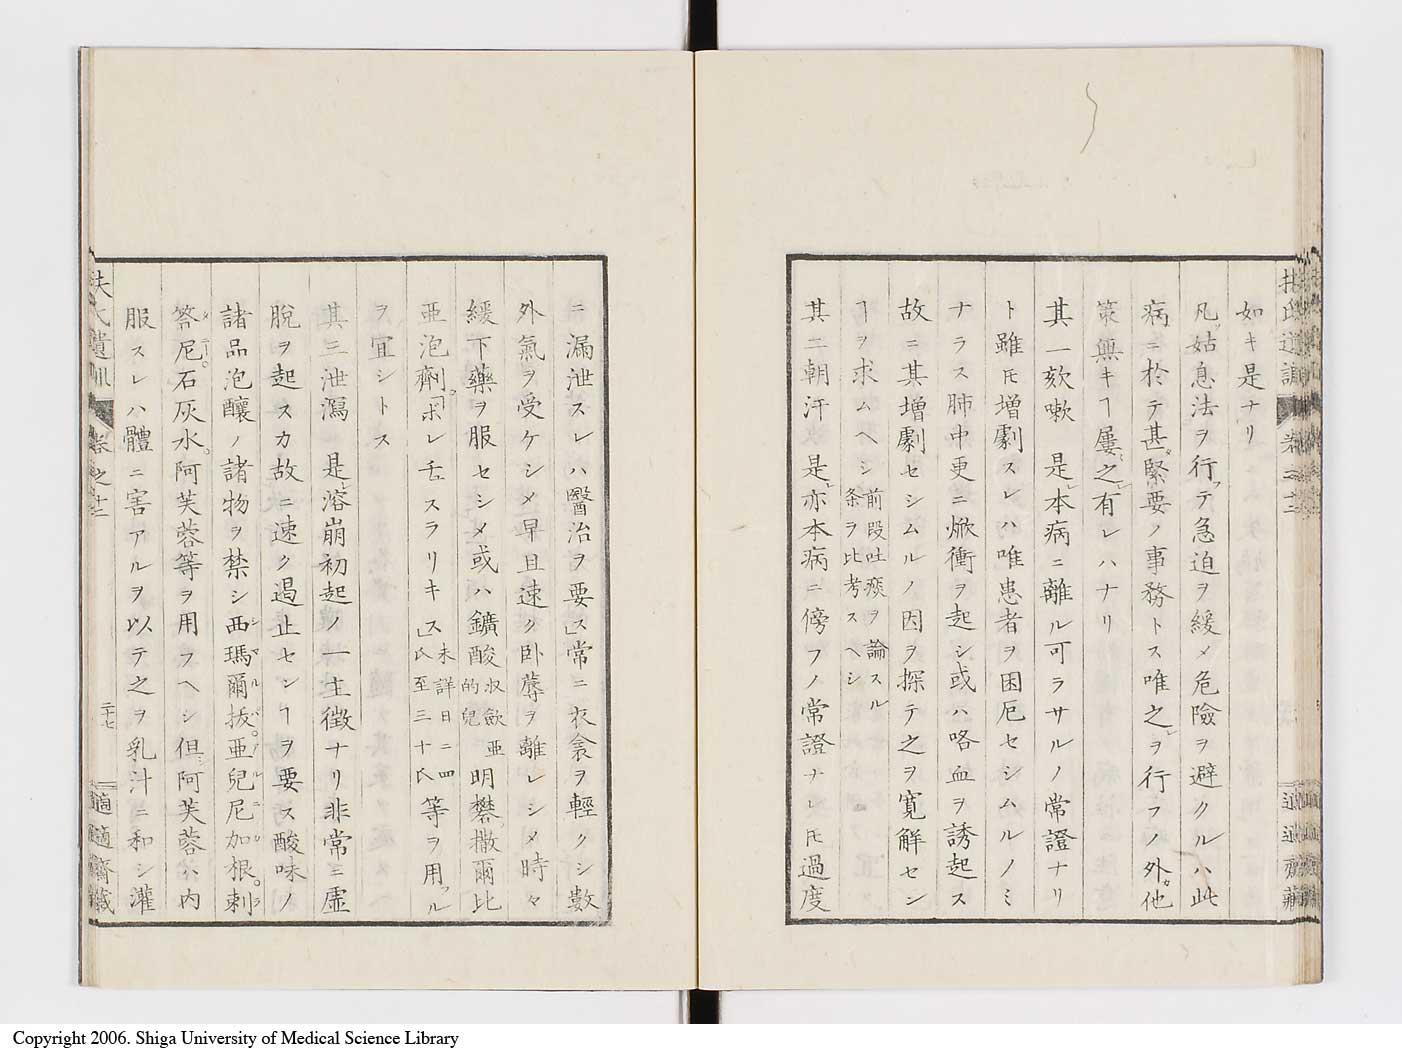 如キ是ナリ
凡ソ姑息法ヲ行フテ急迫ヲ緩メ危險ヲ避クルハ此
病ニ於テ甚タ緊要ノ事務トス唯之レヲ行フノ外他
策無キヿ屢之レ有レハナリ
其一欬嗽 是レ本病ニ離ル可ラサルノ常證ナリ
ト雖𪜈增劇スレハ唯患者ヲ困厄セシムルノミ
ナラス肺中更ニ焮衝ヲ起シ或ハ咯血ヲ誘起ス
故ニ其增劇セシムルノ因ヲ探テ之ヲ寛解セン
ヿヲ求ムヘシ前段吐痰ヲ論スル条ヲ比考スヘシ
其二朝汗 是レ亦本病ニ傍フノ常證ナレ𪜈過度
ニ漏泄スレハ醫治ヲ要ス常ニ衣衾ヲ輕クシ數
外氣ヲ受ケシメ早旦速ク卧蓐ヲ離レシメ時々
緩下藥ヲ服セシメ或ハ鑛酸 明礬撒爾比
亜泡劑 レ舌スラリキス未詳日ニ四氏至三十氏等ヲ用フル
ヲ宜シトス
其三泄瀉 是レ溶崩初起ノ一主徴ナリ非常ニ虚
脫ヲ起スカ故ニ速ク遏止センヿヲ要ス酸味ノ
諸品泡釀ノ諸物ヲ禁シ西瑪爾抜亜兒尼加根剌
答尼石灰水阿芙蓉等ヲ用フヘシ但シ阿芙蓉ハ内
服スレハ體ニ害アルヲ以テ之ヲ乳汁ニ和シ灌
扶氏遺訓 卷之十二
二十七
適適齋藏
Copyright 2006. Shiga University of Medical Science Library